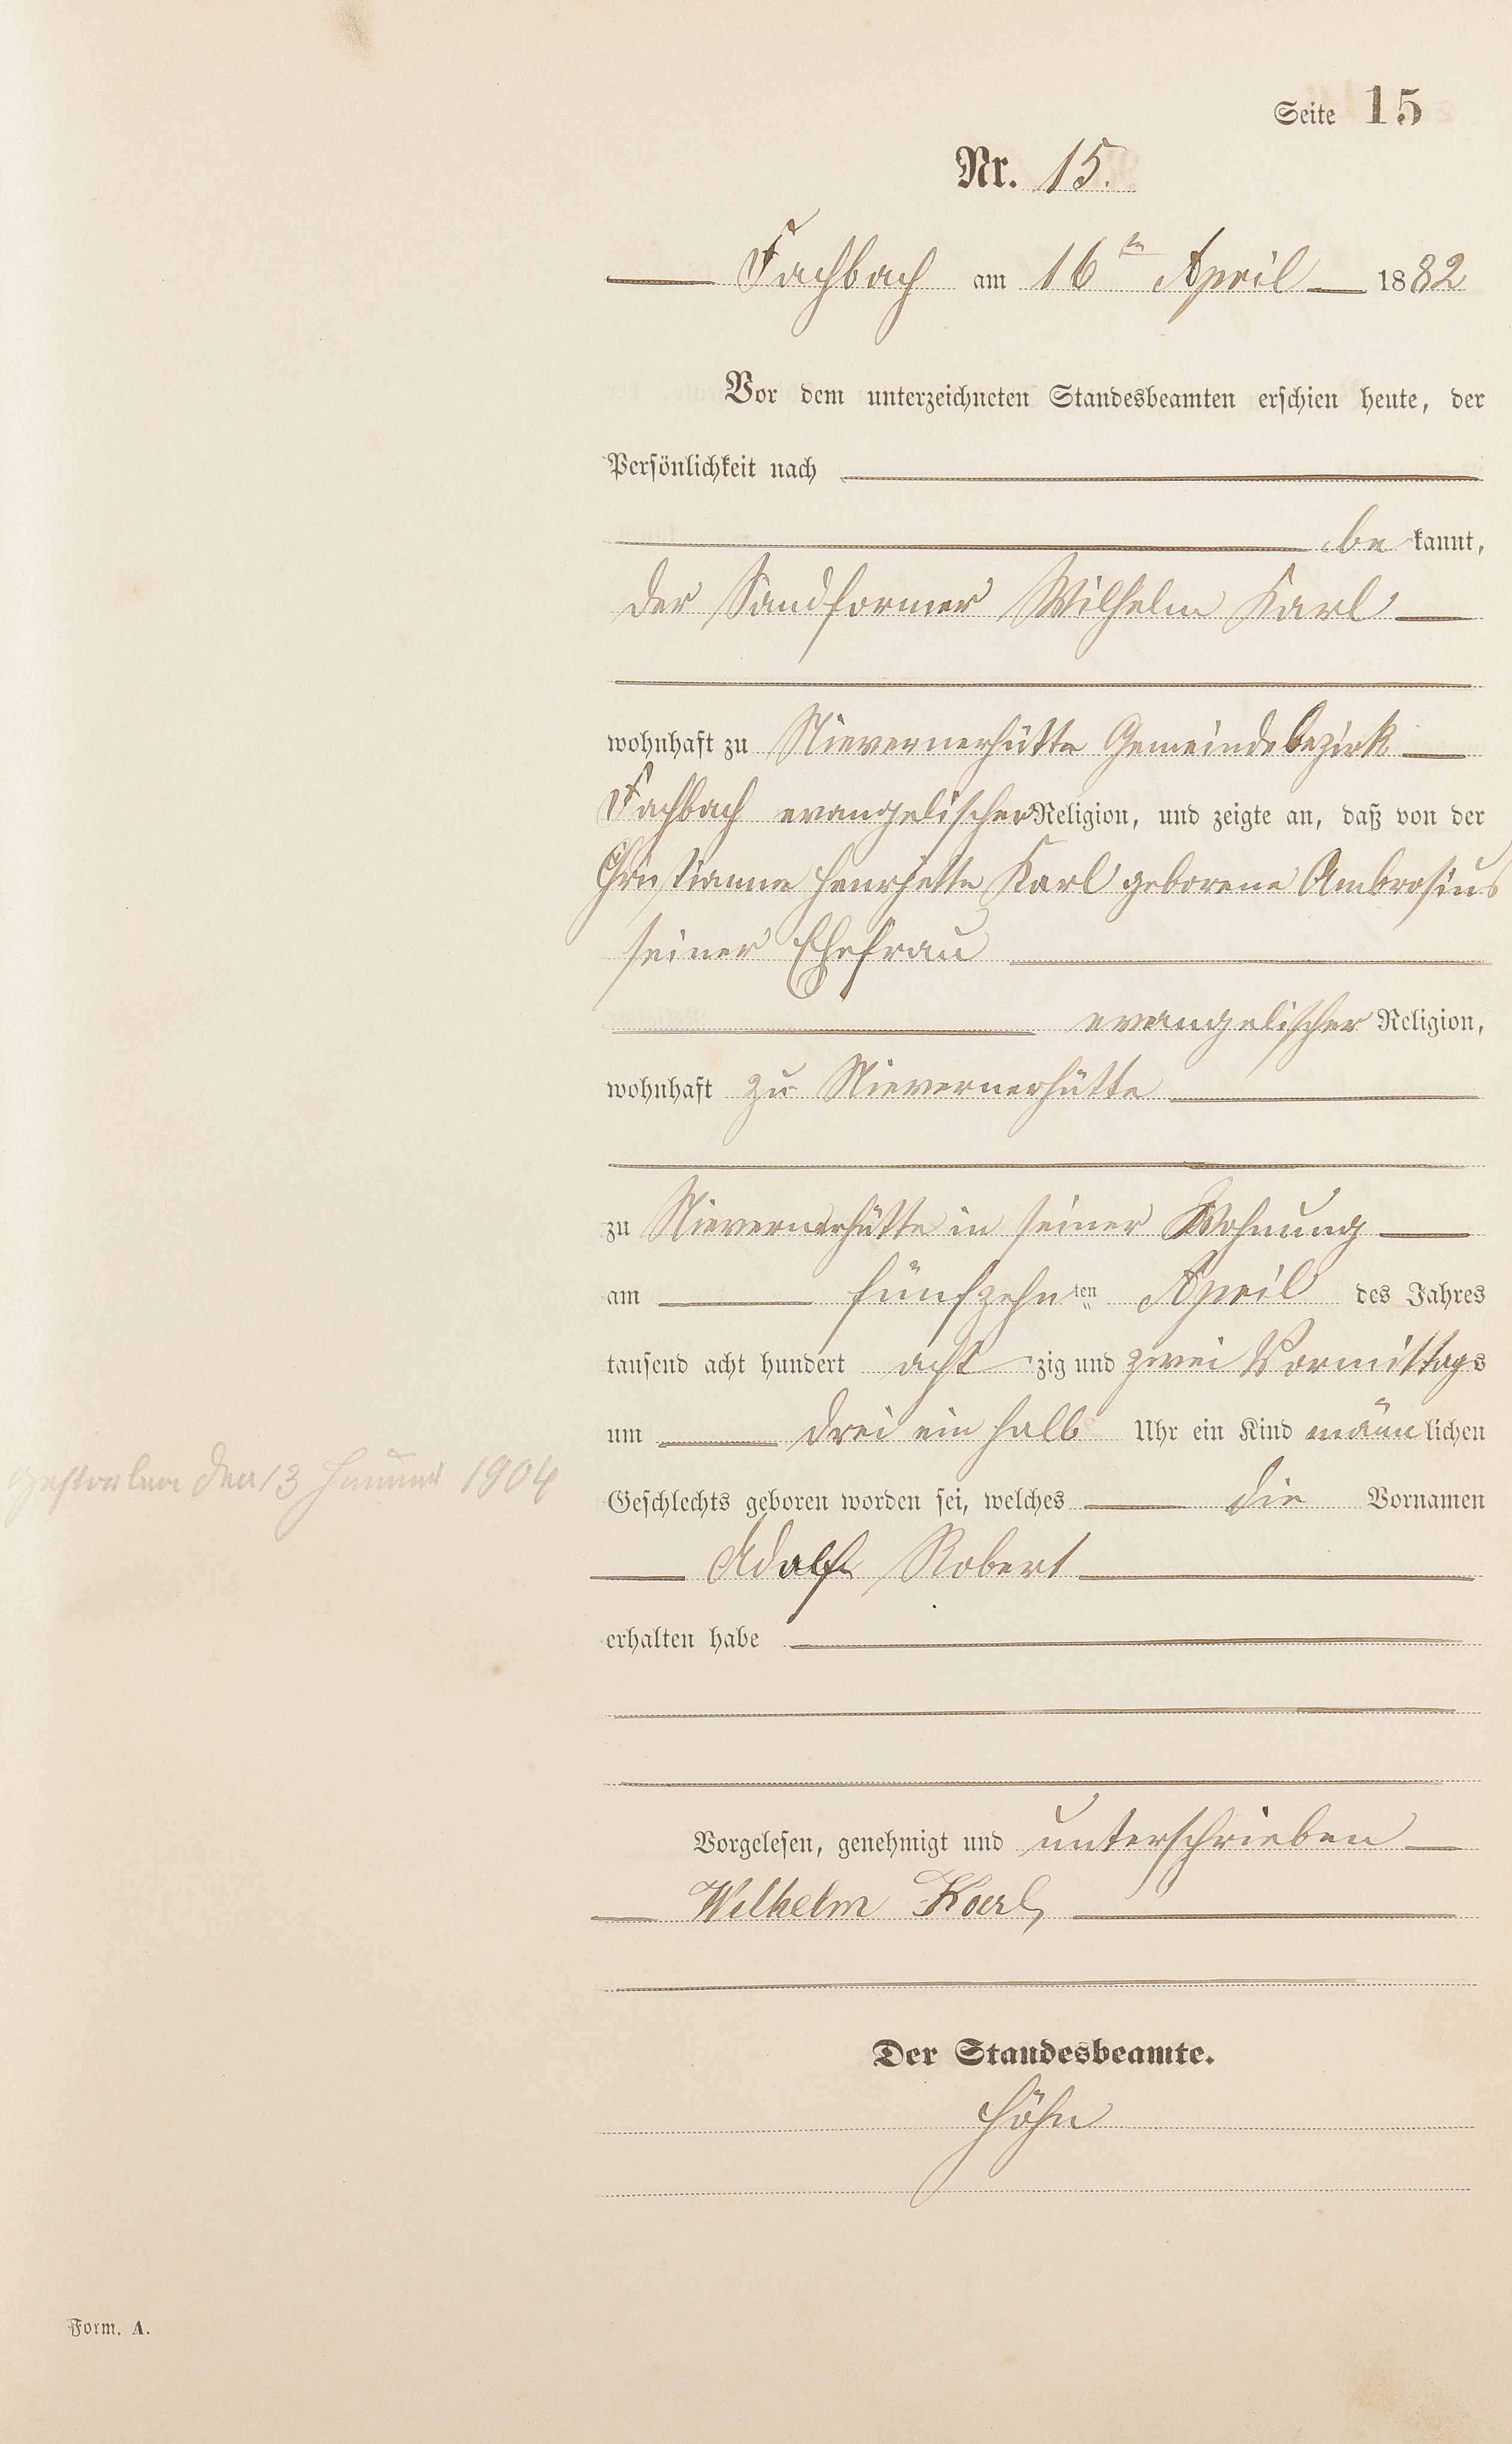 Seite 15
Nr. 15.
Fachbach am 16ten April 1882
Vor dem unterzeichneten Standesbeamten erschien heute, der
Persönlichkeit nach
be kannt,
der Sandformer Wilhelm Karl
wohnhaft zu Nievernerhütte Gemeindebezirk
Fachbach evangelischer Religion, und zeigte an, daß von der
Christianne Henrjette Karl geborene Ambrosius
seiner Ehefrau
evangelischer Religion,
wohnhaft zu Nievernerhütte
zu Nievernerhütte in seiner Wohnung
am fünfzehnten April des Jahres
tausend acht hundert acht zig und zwei Vormittags
um drei ein halb Uhr ein Kind männlichen
gestorben den 13 Januar 1904
Geschlechts geboren worden sei, welches die Vornamen
Adolf Robert
erhalten habe
Vorgelesen, genehmigt und unterschrieben
Wilhelm Karl
Der Standesbeamte.
Höhn
Form. A.